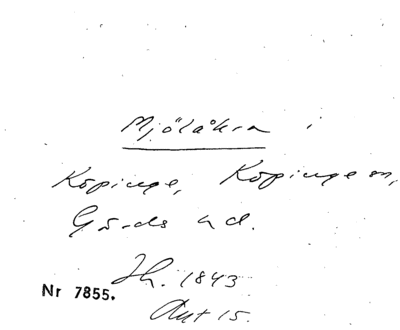 Mjölåkra i
Köpinge, Köpinge sn,
Gärds hd.
Jh. 1843
Nr 7855.
Akt 15.